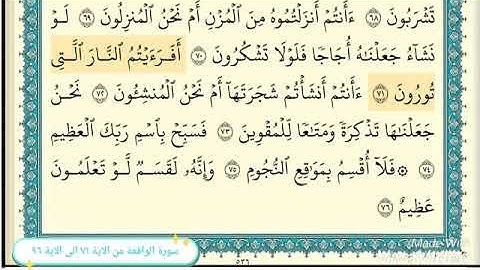 تَشْرَبُونَ ٦٨ ءَأَنتُمْ أَنزَلْتُمُوهُ مِنَ ٱلْمُزْنِ أَمْ نَحْنُ ٱلْمُنزِلُونَ ٦٩ لَوْ
نَشَآءُ جَعَلْنَٰهُ أُجَاجًا فَلَوْلَا تَشْكُرُونَ ٧٠ أَفَرَءَيْتُمُ ٱلنَّارَ ٱلَّتِى
تُورُونَ ٧١ ءَأَنتُمْ أَنشَأْتُمْ شَجَرَتَهَآ أَمْ نَحْنُ ٱلْمُنشِـُٔونَ ٧٢ نَحْنُ
جَعَلْنَٰهَا تَذْكِرَةً وَمَتَٰعًا لِّلْمُقْوِينَ ٧٣ فَسَبِّحْ بِٱسْمِ رَبِّكَ ٱلْعَظِيمِ
٧٤ ۞ فَلَآ أُقْسِمُ بِمَوَٰقِعِ ٱلنُّجُومِ ٧٥ وَإِنَّهُۥ لَقَسَمٌ لَّوْ تَعْلَمُونَ
عَظِيمٌ ٧٦
سورة الواقعة من الاية ٧١ الى الاية ٩٦
٥٣٦
Made With